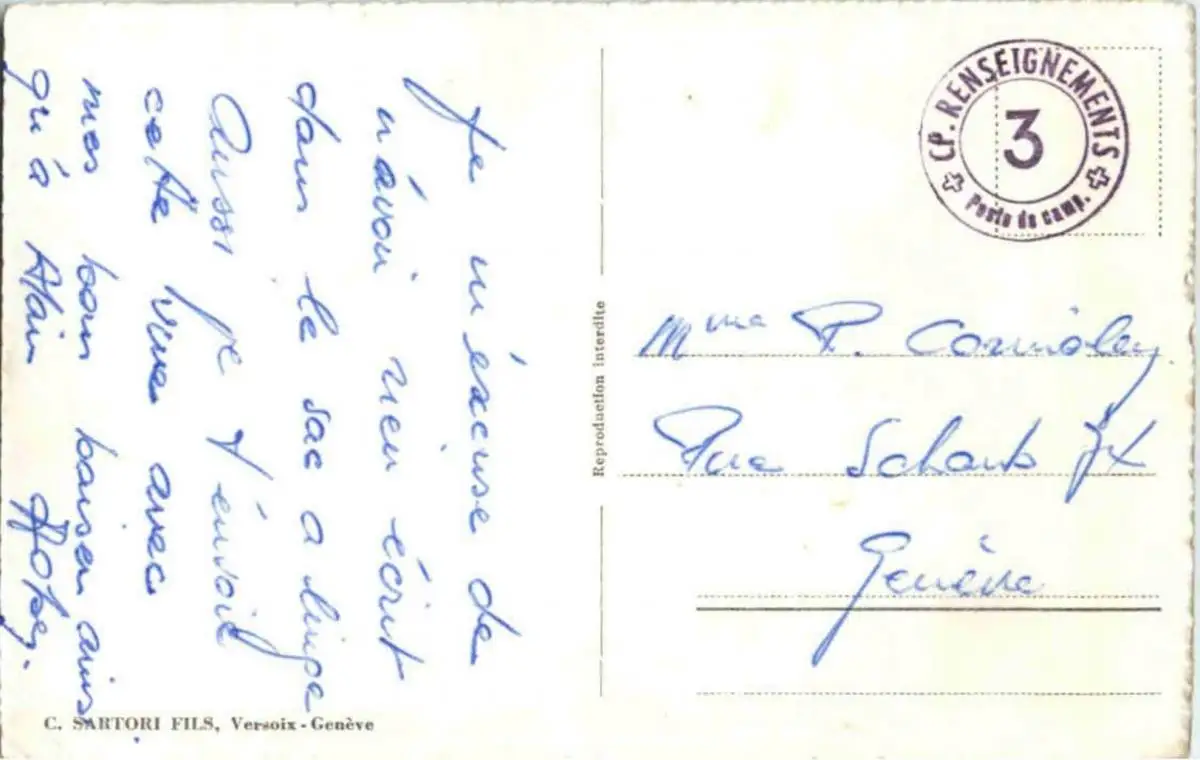 Je m'éxcuse de
n'avoir rien écrit
dans le sac a linge
Aussi je t'envoie
cette vue avec
mes bons baisers ainsi
qu'à Alain
C. SARTORI FILS, Versoix - Genève
Reproduction interdite
CP. RENSEIGNEMENTS
3
Poste de camp.
Mme P.
Rue Schaub
Genève